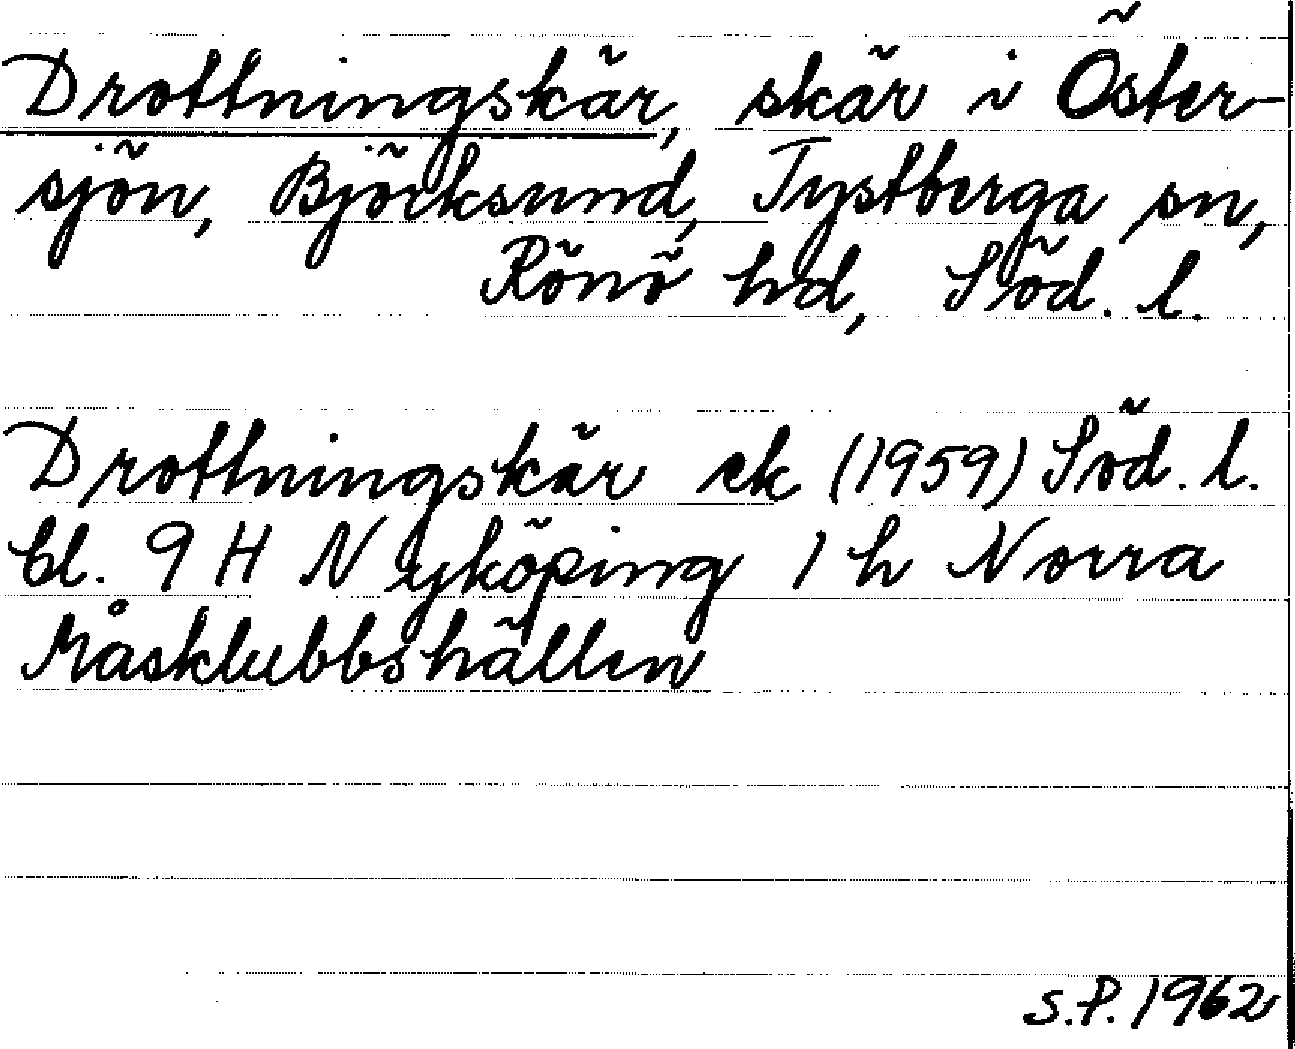 Drottningskär, skär i Öster-
sjön, Björksund, Tystberga sn,
Rönö hd, Söd. l.
Drottningskär ek (1959) Söd. l.
bl. 9 H Nyköping 1 h Norra
Måsklubbshällen
S.P. 1962